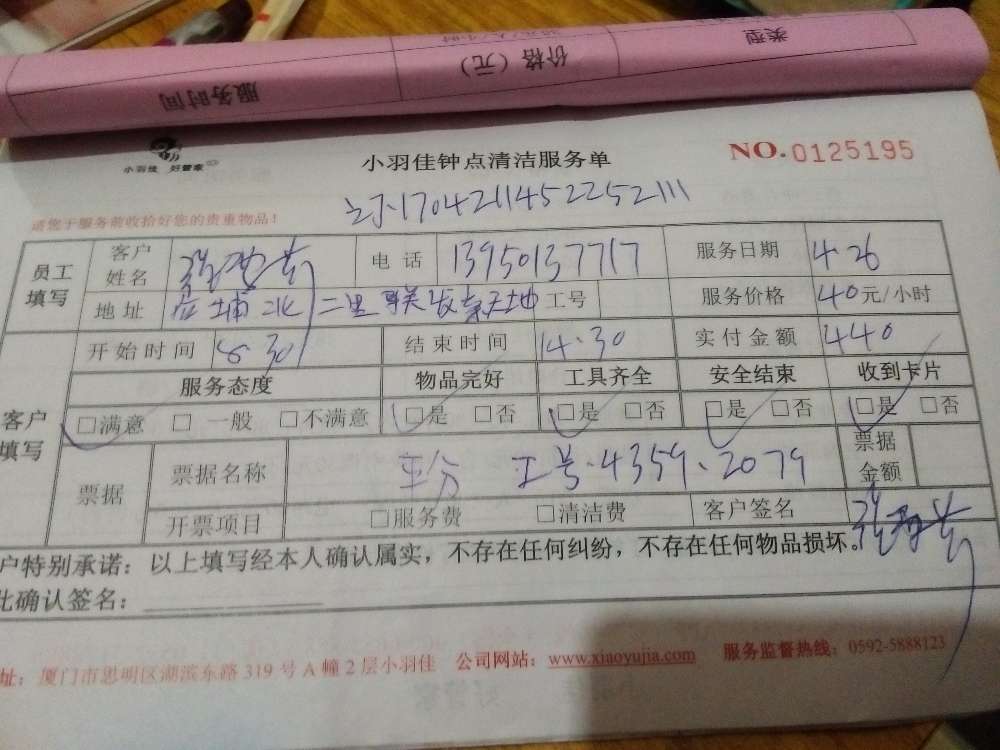 类型 价格（元） 服务时间
小羽佳 好管家
小羽佳钟点清洁服务单
NO.0125195
1704211452252111
请您于服务前收拾好您的贵重物品！
员工填写 客户姓名 电话 13950137717 服务日期 4.26
地址 二里联发新天地 工号 服务价格 40元/小时
客户填写 开始时间 8.30 结束时间 14.30 实付金额 440
服务态度 物品完好 工具齐全 安全结束 收到卡片
□满意 □一般 □不满意 □是 □否 □是 □否 □是 □否 □是 □否
票据 票据名称 平分 工号.4359.2079 票据金额
开票项目 □服务费 □清洁费 客户签名
户特别承诺：以上填写经本人确认属实，不存在任何纠纷，不存在任何物品损坏。
此确认签名：
址：厦门市思明区湖滨东路319号A幢2层小羽佳 公司网站：www.xiaoyujia.com 服务监督热线：0592-5888123